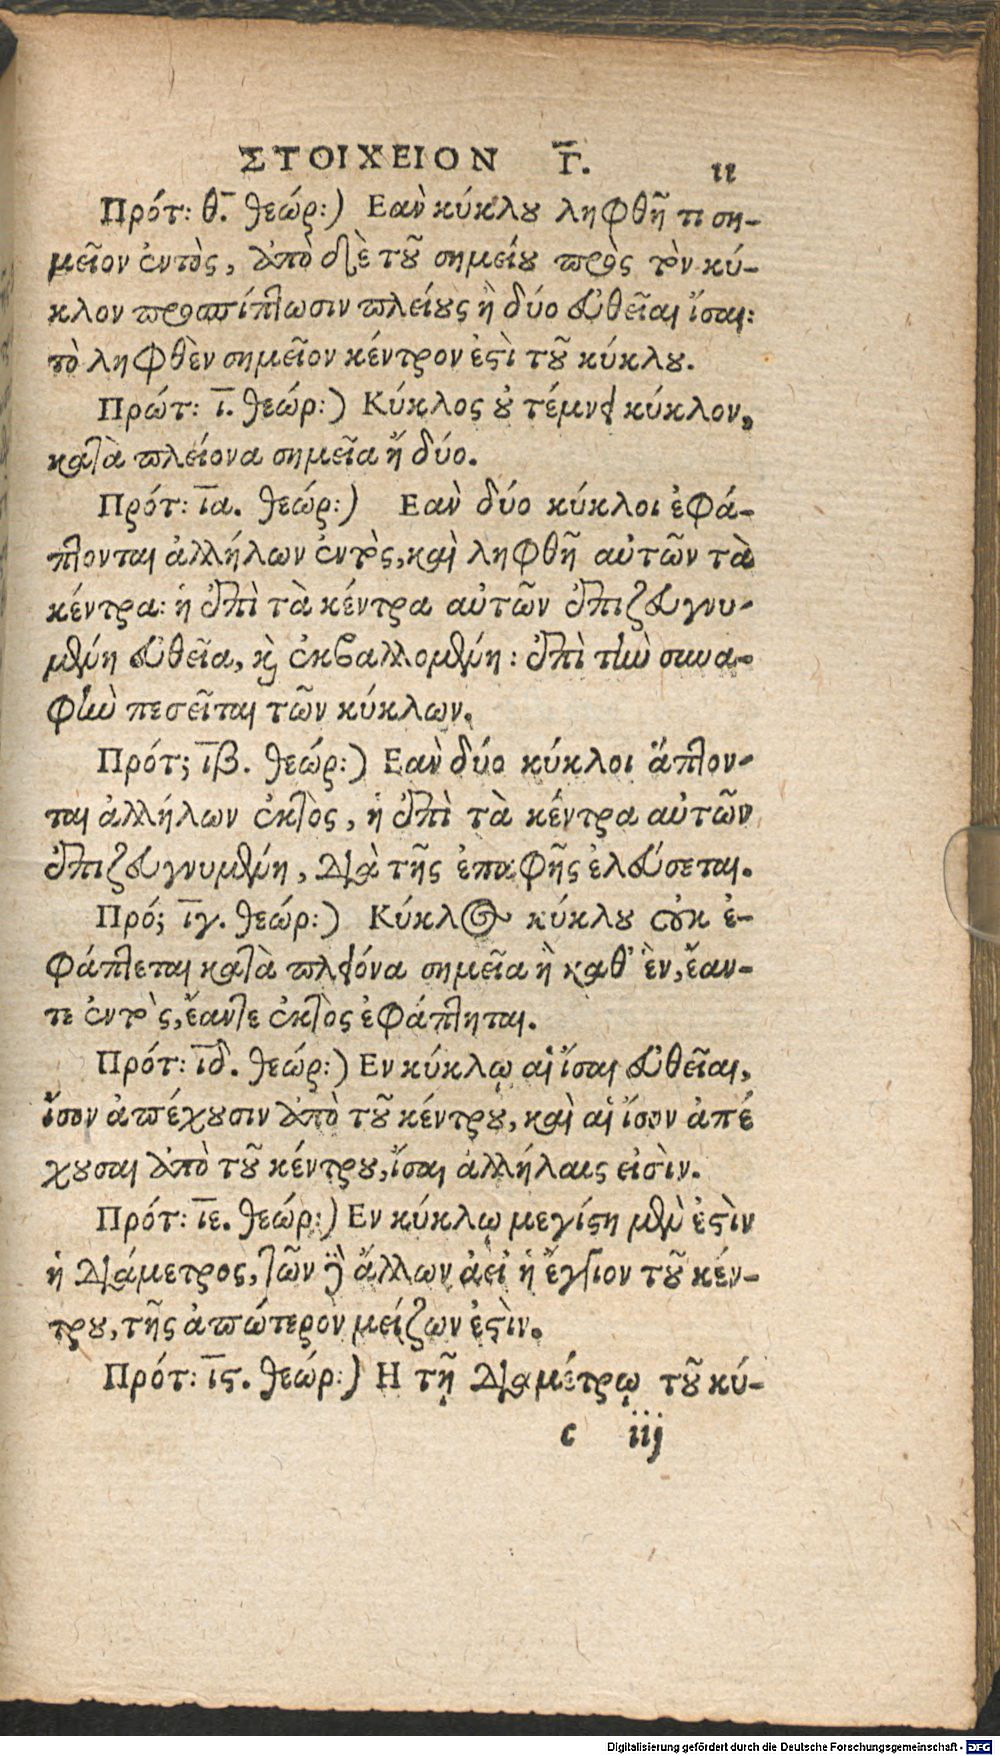 ΣΤΟΙΧΕΙΟΝ Γ. 11
Πρότ: θ. θεώρ:) Εὰν κύκλου ληφθῆ τι ση-
μεῖον ἐντὸς, ἀπὸ δὲ τοῦ σημείου πρὸς τὸν κύ-
κλον προσπίπτωσιν πλείους ἢ δύο εὐθεῖαι ἴσαι:
τὸ ληφθὲν σημεῖον κέντρον ἐστὶ τοῦ κύκλου.
Πρώτ: ι. θεώρ:) Κύκλος οὐ τέμνει κύκλον,
κατὰ πλείονα σημεῖα ἢ δύο.
Πρότ: ια. θεώρ:) Εὰν δύο κύκλοι ἐφά-
πτονται ἀλλήλων ἐντὸς, καὶ ληφθῆ αὐτῶν τὰ
κέντρα: ἡ ἐπὶ τὰ κέντρα αὐτῶν ἐπιζευγνυ-
μένη εὐθεῖα, καὶ ἐκβαλλομένη: ἐπὶ τὴν συνα-
φὴν πεσεῖται τῶν κύκλων.
Πρότ; ιβ. θεώρ:) Εὰν δύο κύκλοι ἅπτον-
ται ἀλλήλων ἐκτὸς, ἡ ἐπὶ τὰ κέντρα αὐτῶν
ἐπιζευγνυμένη, διὰ τῆς ἐπαφῆς ἐλεύσεται.
Πρό; ιγ. θεώρ:) Κύκλος κύκλου οὐκ ἐ-
φάπτεται κατὰ πλειόνα σημεῖα ἢ καθ' ἓν, ἔαν-
τε ἐντὸς, ἔαντε ἐκτὸς ἐφάπτηται.
Πρότ: ιδ. θεώρ:) Εν κύκλῳ αἱ ἴσαι εὐθεῖαι,
ἴσον ἀπέχουσιν ἀπὸ τοῦ κέντρου, καὶ αἱ ἴσον ἀπέ
χουσαι ἀπὸ τοῦ κέντρου, ἴσαι ἀλλήλαις εἰσὶν.
Πρότ: ιε. θεώρ:) Εν κύκλῳ μεγίστη μὲν ἐστὶν
ἡ διάμετρος, τῶν δὲ ἄλλων ἀεὶ ἡ ἔγγιον τοῦ κέν-
τρου, τῆς ἀπώτερον μείζων ἐστὶν.
Πρότ: ις. θεώρ:) Η τῇ διαμέτρῳ τοῦ κύ-
c iij
Digitalisierung gefördert durch die Deutsche Forschungsgemeinschaft - DFG